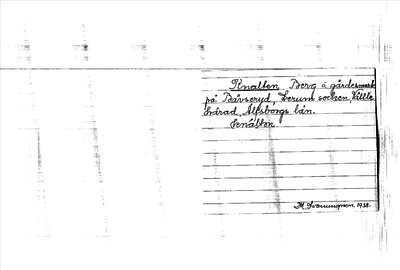 Knatten Berg å gärdesmark
på Bävseryd, Lerum socken, Vättle
härad Älfsborgs län.
knátten
M. Svenungsson 1938.